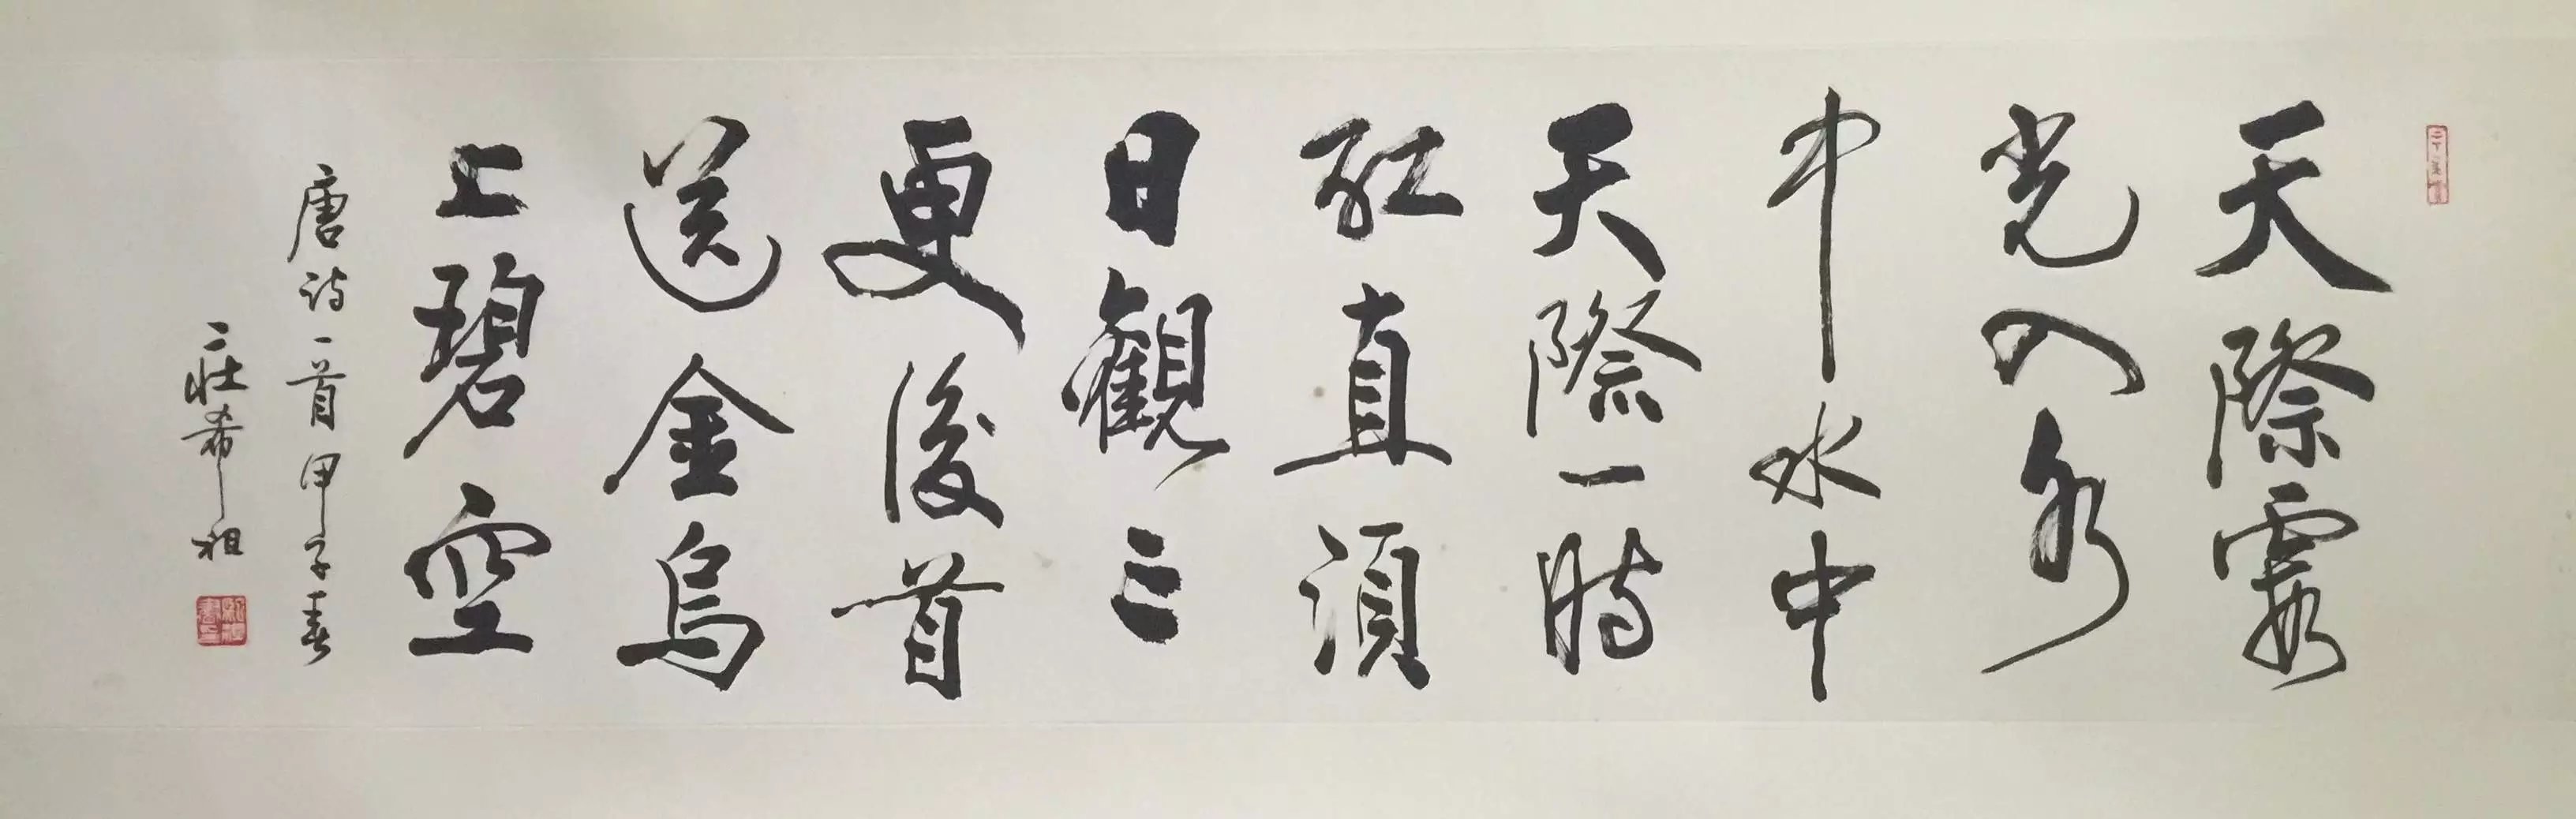 天際霞
光入水
中水中
天際一時
紅直須
日觀三
更後首
送金烏
上碧空
唐詩一首甲子春
莊希祖